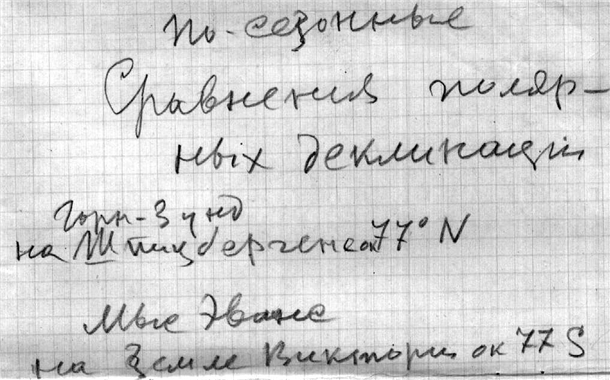 по-сезонные
Сравнения поляр-
ных деклинаций
Горн-Зунд
на Шпицбергене ок 77° N
Мыс Эванс
на Земле Виктории ок 77 S